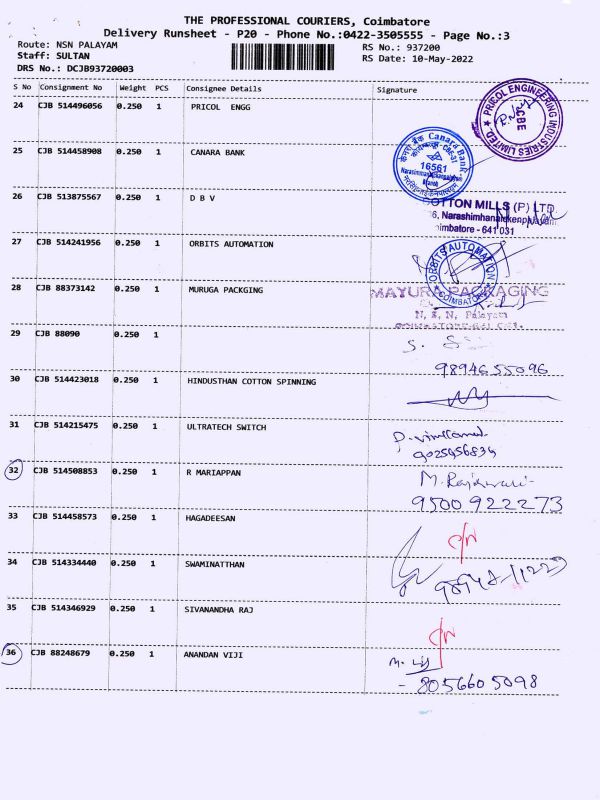 THE PROFESSIONAL COURIERS, Coimbatore
Delivery Runsheet - P20 - Phone No.:0422-3505555 - Page No.:3
Route: NSN PALAYAM RS No.: 937200
Staff: SULTAN RS Date: 10-May-2022
DRS No.: DCJB93720003
S No Consignment No Weight PCS Consignee Details Signature
24 CJB 514496056 0.250 1 PRICOL ENGG
PRICOL ENGINEERING INDUSTRIES LIMITED
CBE
25 CJB 514458908 0.250 1 CANARA BANK
केनरा बैंक Canara Bank
16561
Narasimmanaickenpalayam
Branch
26 CJB 513875567 0.250 1 D B V
COTTON MILLS (P) LTD
6, Narashimhanaickenpalayam
oimbatore - 641 031
27 CJB 514241956 0.250 1 ORBITS AUTOMATION
ORBITS AUTOMATION
COIMBATORE
28 CJB 88373142 0.250 1 MURUGA PACKGING
MAYURA PACKAGING
N. S. N. Palayam
29 CJB 88090 0.250 1
S.
9894655096
30 CJB 514423018 0.250 1 HINDUSTHAN COTTON SPINNING
31 CJB 514215475 0.250 1 ULTRATECH SWITCH
9025456834
32 CJB 514508853 0.250 1 R MARIAPPAN
M. Rajeswari
9500922273
33 CJB 514458573 0.250 1 HAGADEESAN
34 CJB 514334440 0.250 1 SWAMINATTHAN
35 CJB 514346929 0.250 1 SIVANANDHA RAJ
36 CJB 88248679 0.250 1 ANANDAN VIJI
- 8056605098